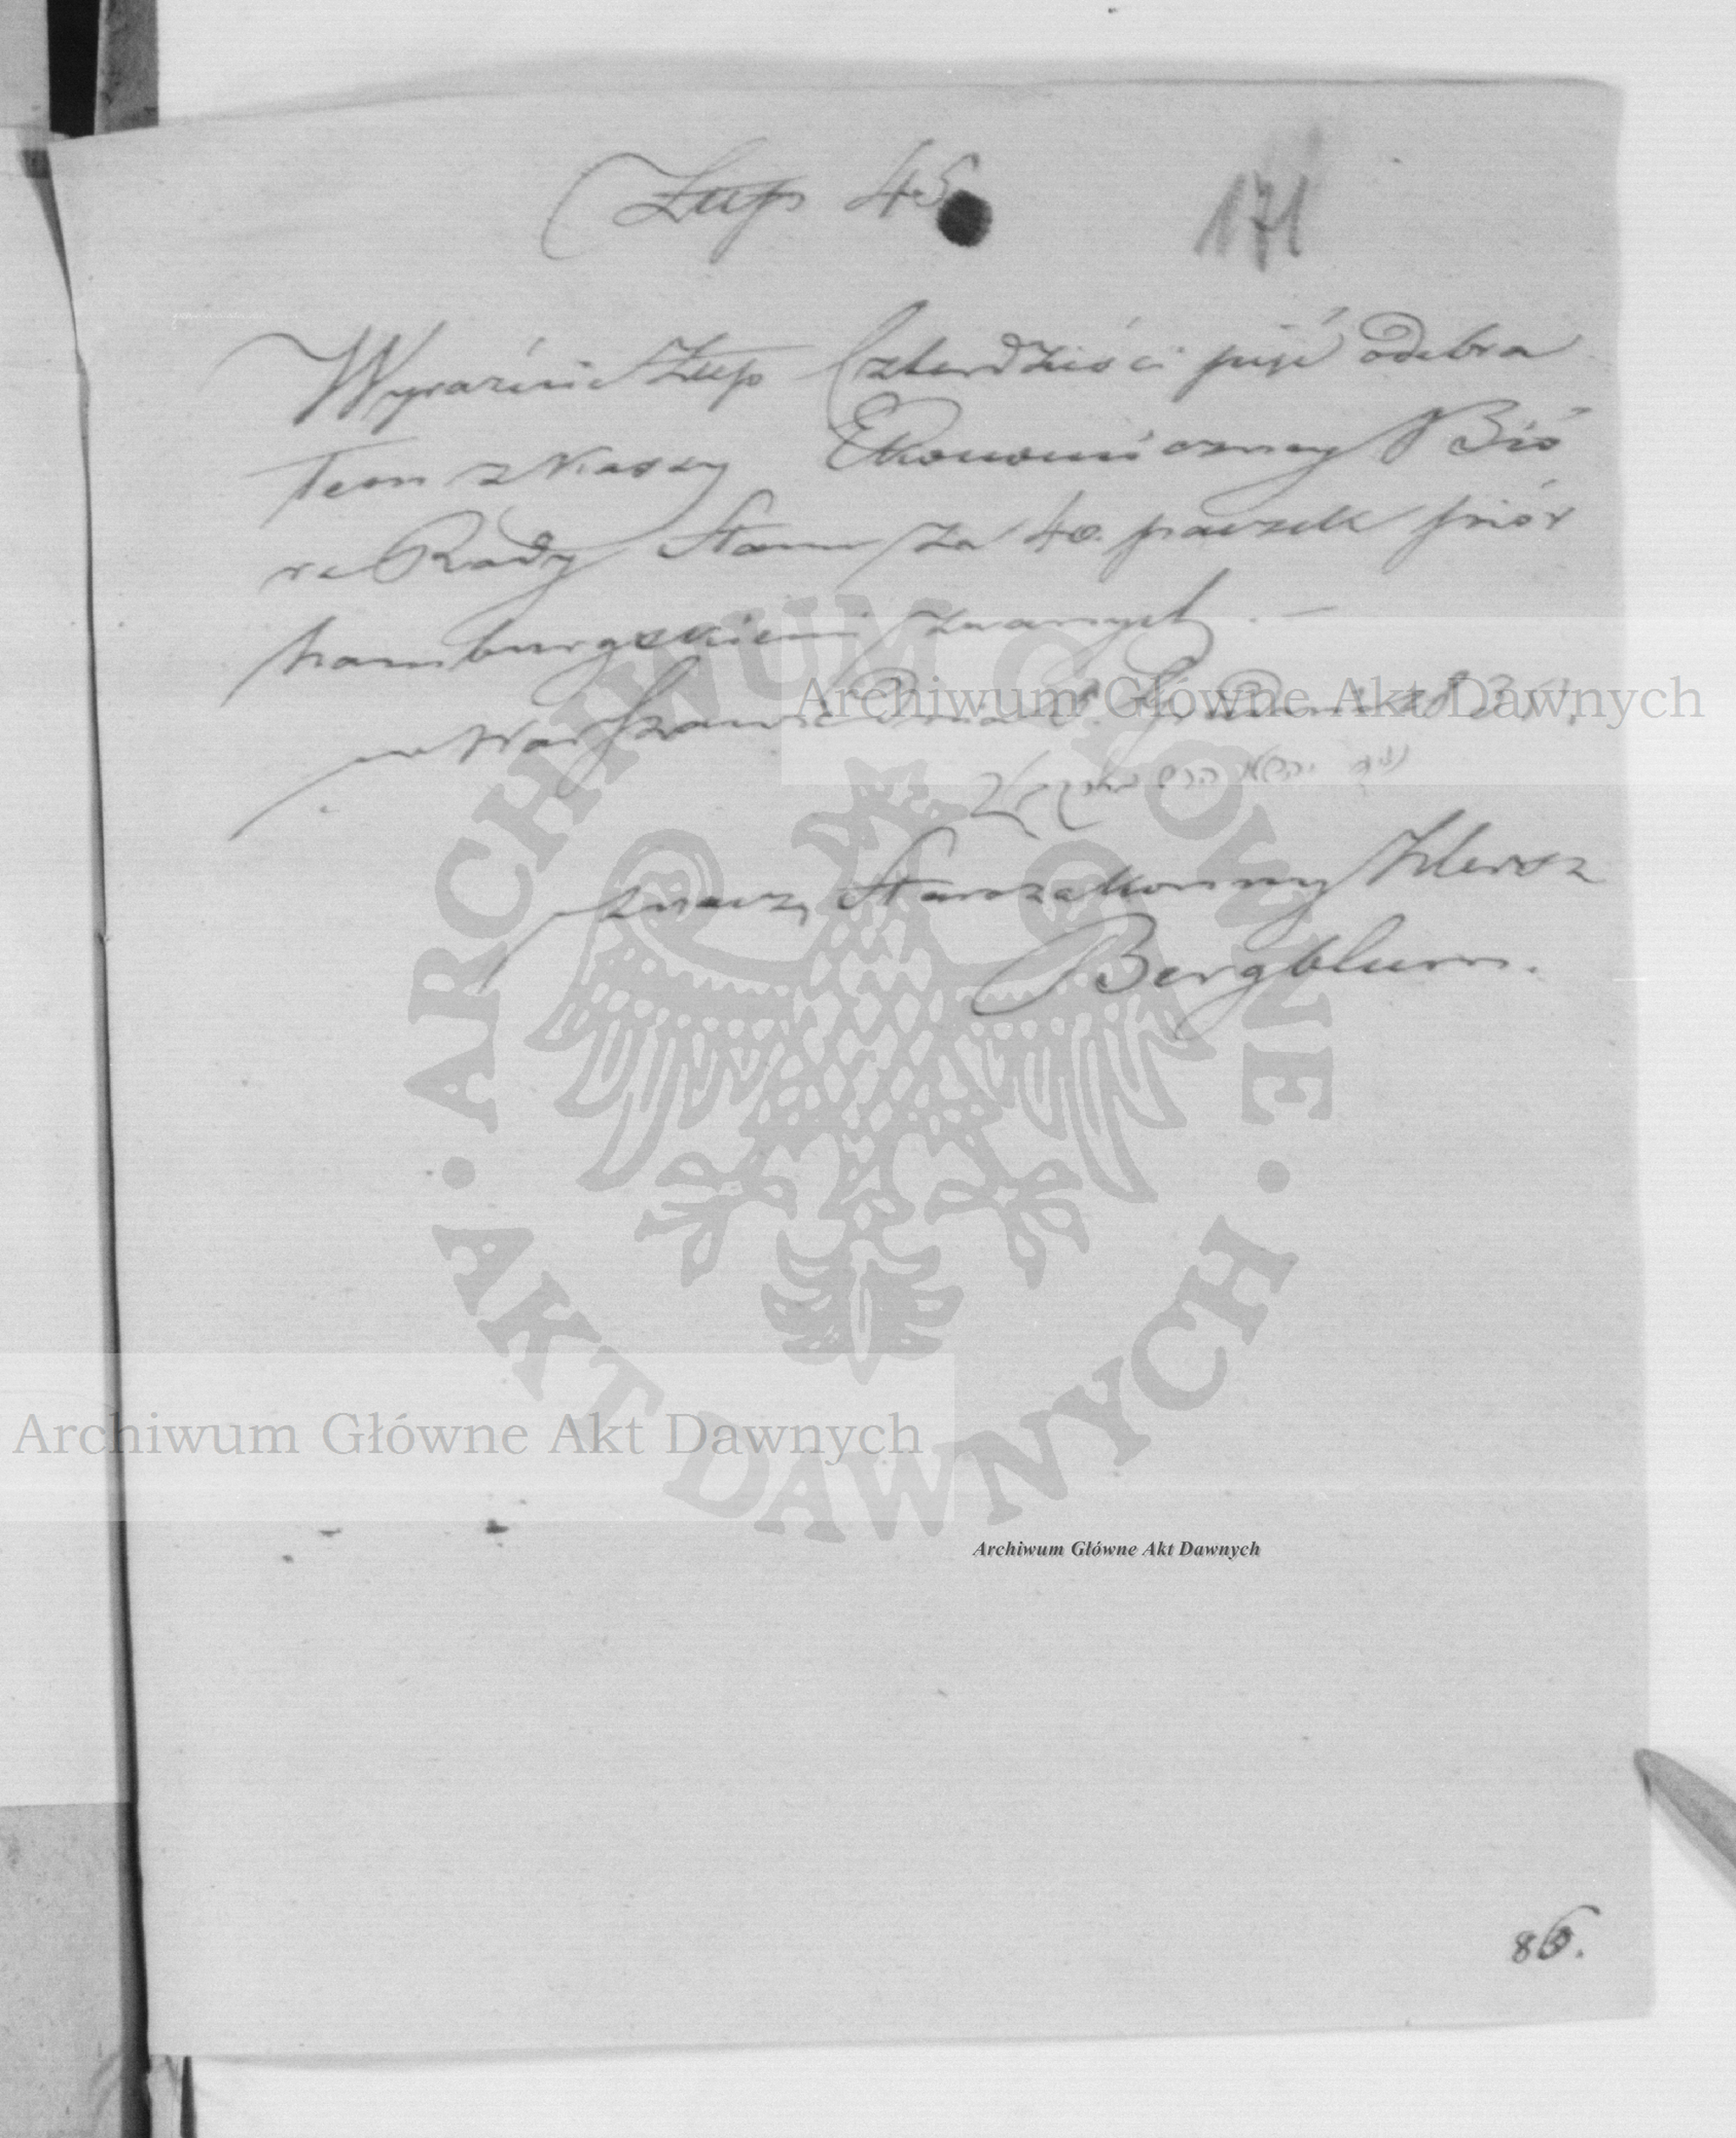 Złłp 45
171
Wyraźnie Złłp Czterdzieści pięć odebra
łem z Kassy Ekonomiczney Bió
ra Rady Stanu za 40. paczek piór
hamburgskiemi zwanych. —
w Warszawie Dnia Grudnia 183
יהושע הרש
znaczy Starozakonny Hersz
Bergblum.
86.
ARCHIWUM GŁÓWNE
AKT DAWNYCH
Archiwum Główne Akt Dawnych
Archiwum Główne Akt Dawnych
Archiwum Główne Akt Dawnych